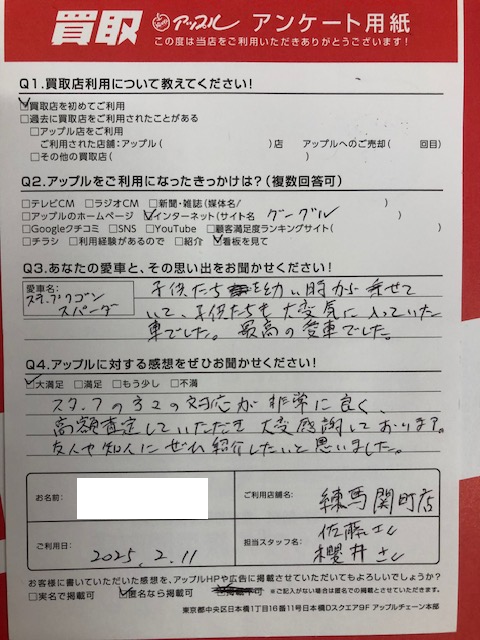 買取 アップル アンケート用紙
この度は当店をご利用いただきありがとうございます!
Q1.買取店利用について教えてください!
☑買取店を初めてご利用
□過去に買取店をご利用されたことがある
□アップル店をご利用
ご利用された店舗:アップル( )店 アップルへのご売却( 回目)
□その他の買取店( )
Q2.アップルをご利用になったきっかけは?(複数回答可)
□テレビCM □ラジオCM □新聞・雑誌(媒体名/ )
□アップルのホームページ ☑インターネット(サイト名 グーグル )
□Googleクチコミ □SNS □YouTube □顧客満足度ランキングサイト( )
□チラシ □利用経験があるので □紹介 ☑看板を見て
Q3.あなたの愛車と、その思い出をお聞かせください!
愛車名: ステップワゴン スパーダ
子供たちを幼い時から乗せて
いて、子供たちも大変気に入っていた
車でした。最高の愛車でした。
Q4.アップルに対する感想をぜひお聞かせください!
☑大満足 □満足 □もう少し □不満
スタッフの方々の対応が非常に良く、
高額査定していただき大変感謝しております。
友人や知人にぜひ紹介したいと思いました。
お名前: ご利用店舗名: 練馬関町店
ご利用日: 2025.2.11 担当スタッフ名: 佐藤さん
櫻井さん
お客様に書いていただいた感想を、アップルHPや広告に掲載させていただいてもよろしいでしょうか?
□実名で掲載可 ☑匿名なら掲載可 □掲載不可 ※ご記入がない場合は匿名での掲載とさせていただきます。
東京都中央区日本橋1丁目16番11号日本橋Dスクエア9F アップルチェーン本部